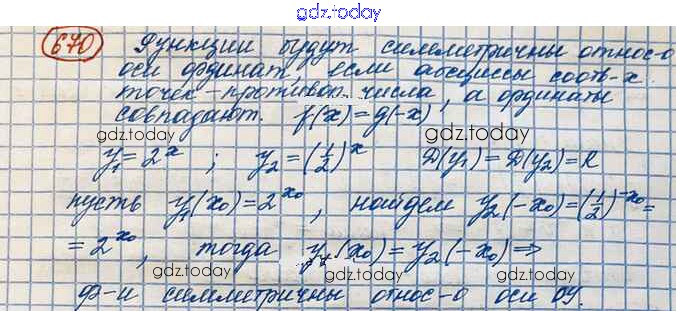 gdz.today
670 Функции будут симметричны относ-о
оси ординат, если абсциссы соотв-х
точек - противоп. числа, а ординаты
совпадают. f(x) = g(-x)
gdz.today
gdz.today
y₁ = 2ˣ ; y₂ = (1/2)ˣ D(y₁) = D(y₂) = R
пусть y₁(x₀) = 2ˣ⁰, найдем y₂(-x₀) = (1/2)⁻ˣ⁰ =
gdz.today
= 2ˣ⁰, тогда y₁(x₀) = y₂(-x₀) ⇒
gdz.today
gdz.today
ф-и симметричны относ-о оси OY.